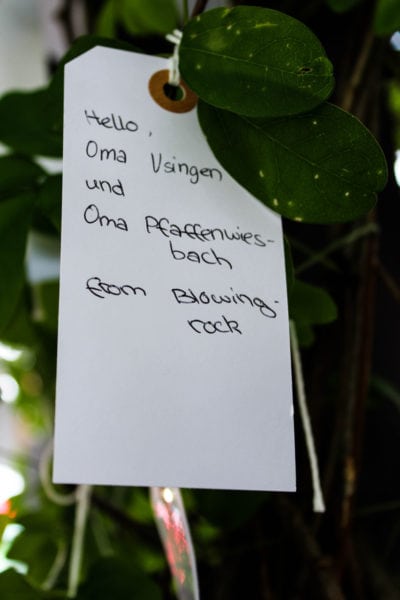 Hello,
Oma Usingen
und
Oma Pfaffenwies-
bach
from Blowing-
rock